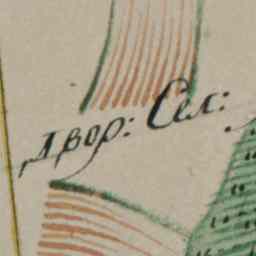 двор: Сел: